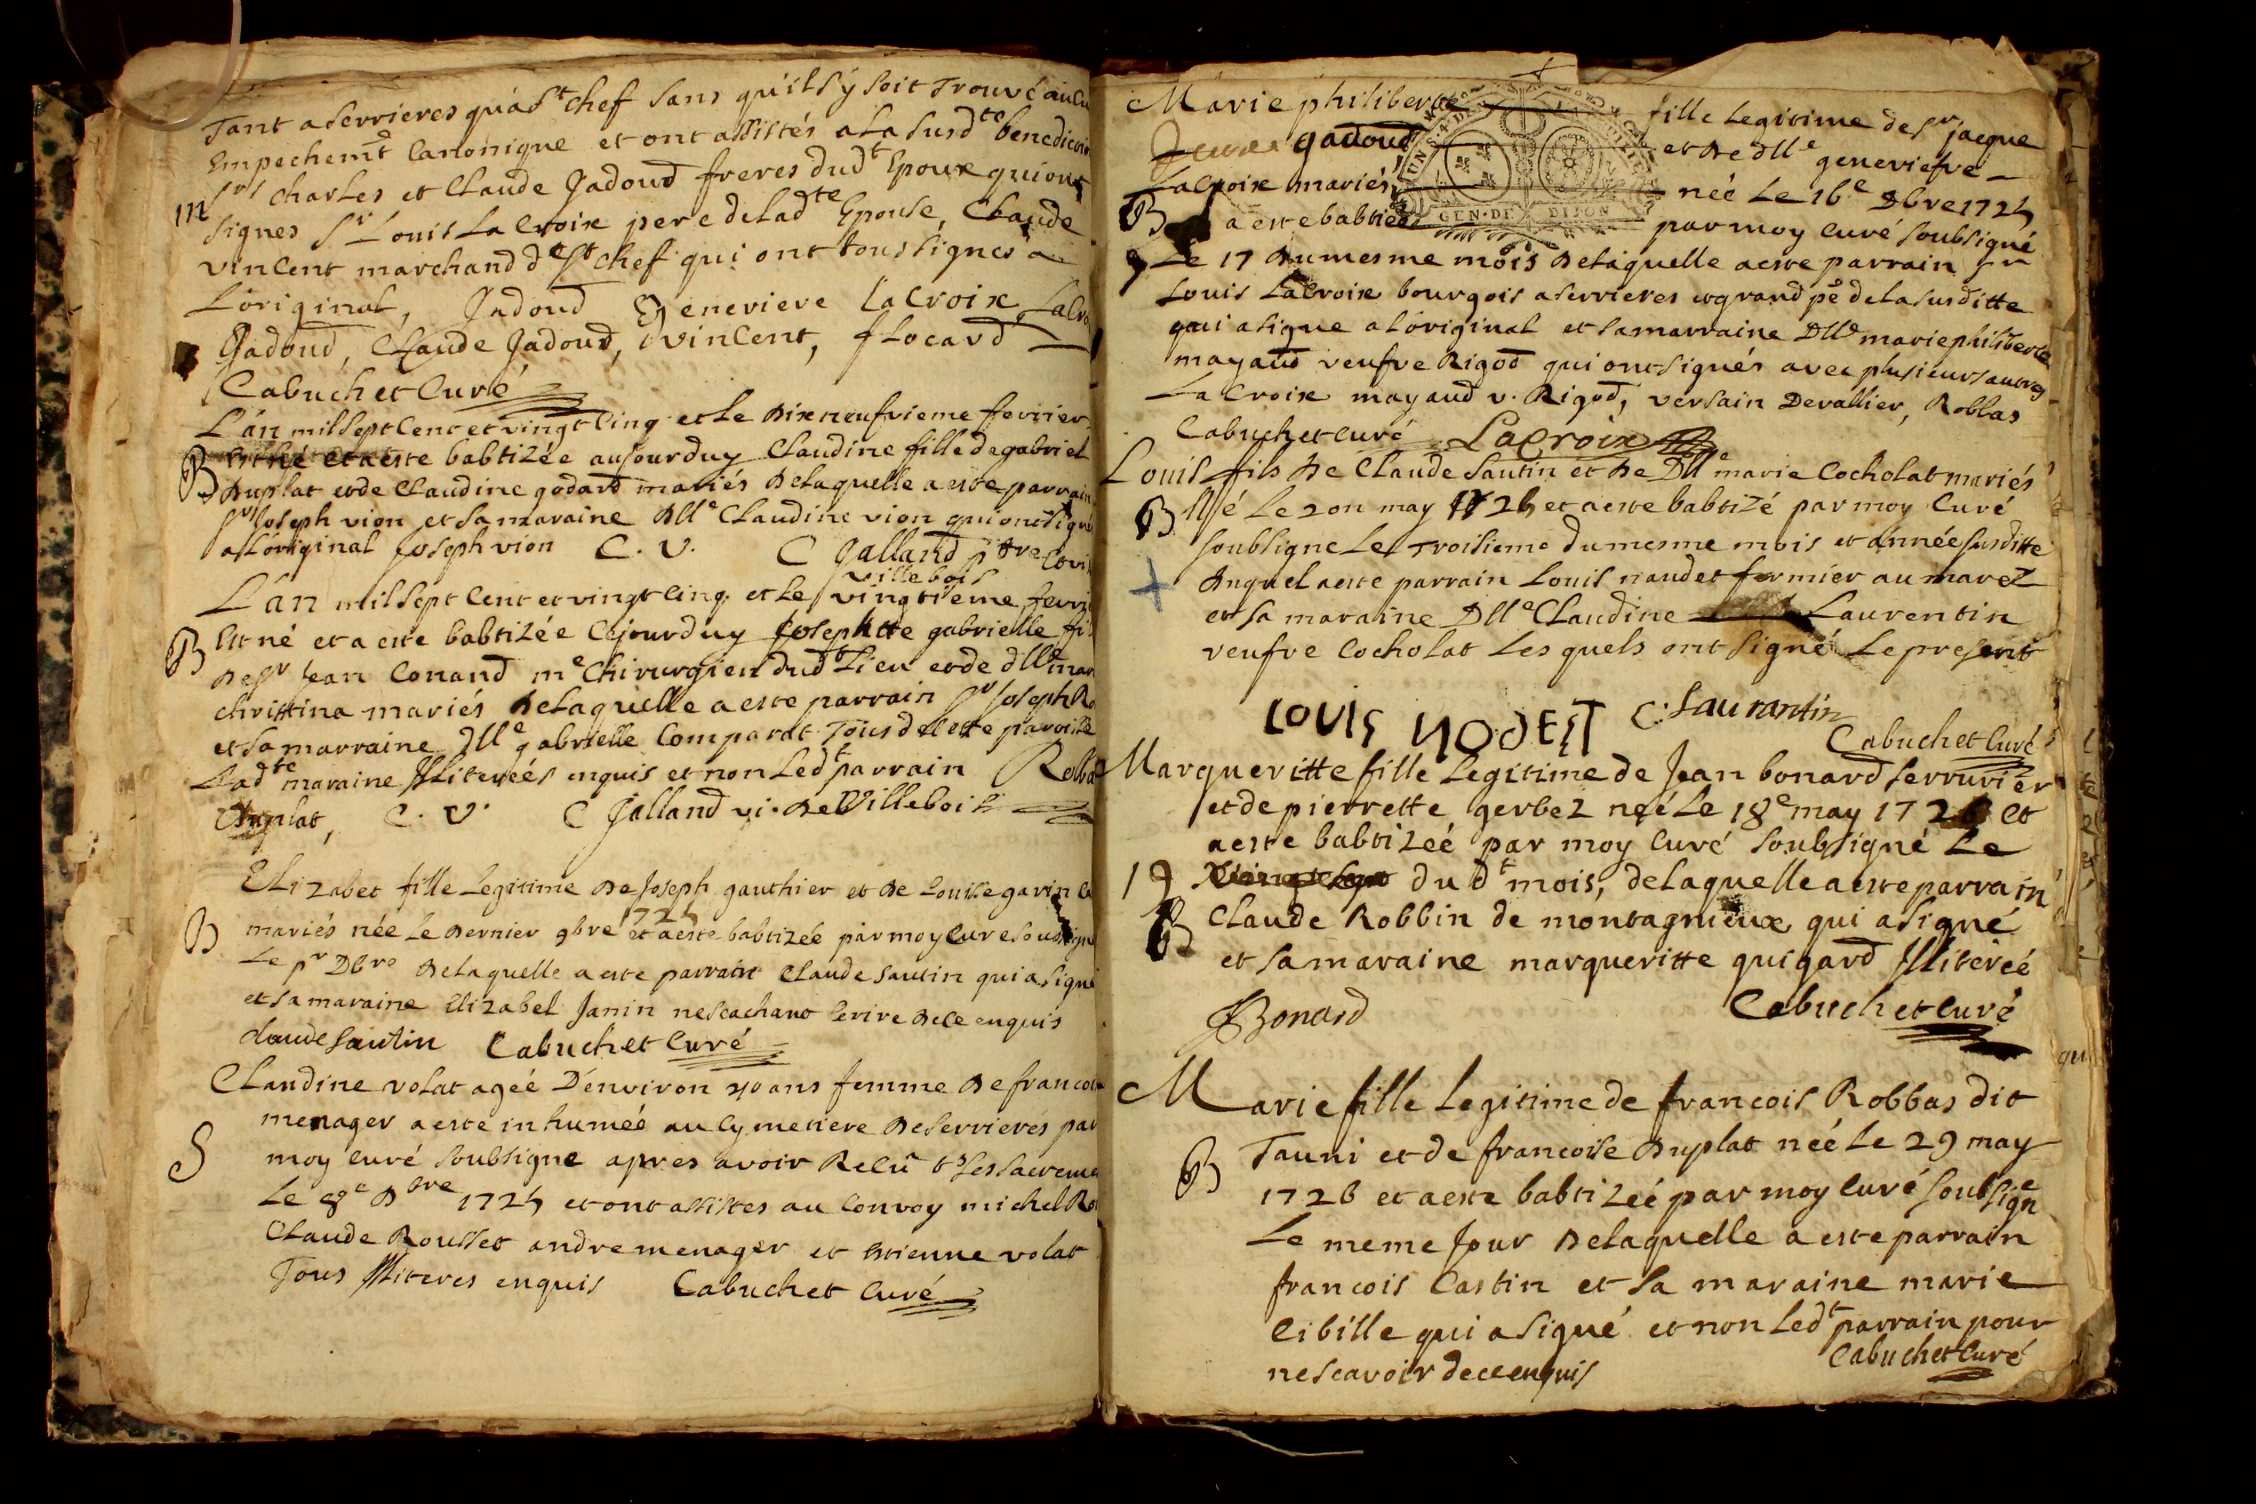 Tant a serrieres qua St chef sans quil sy soit Trouvé aucu
Empechemt Canonique et ont assistés a La susdte benediction
m
Srs Charles et Claude Jadoud freres dudt Epoux qui ont
signes Sr Louis La Croix pere de ladte Epouse, Claude
vincent marchand de St chef qui ont tous signés a
L'original, Jadoud Genevieve LaCroix, LaCro
Jadoud, Claude Jadoud, vincent, flocard
Cabuchet Curé
L'an mil sept Cent et vingt Cinq et le Dix neufvieme fevrier
B Est né et a este babtizée aujourduy Claudine fille de gabriel
Duplat et de Claudine godard mariés De laquelle a este parrain
Sr Joseph vion et sa maraine Dlle Claudine vion qui ont signé
a L'original joseph vion C. V. C Jalland ptre
villebois
L'an mil sept Cent et vingt Cinq et Le vingtieme fevri
B Est né et a este babtizée Cejourduy Josephtte gabrielle fi
De Sr Jean Conand me Chirurgien dudt Lieu et de dlle mar
christina mariés De Laquelle a este parrain Sr Joseph Ro
et sa marraine Dlle gabrielle Comparat Tous de cette paroisse
Ladte maraine Illitereés enquis et non Ledt parrain Robba
Duplat, C. V. C Jalland vi. De Villebois
Elizabet fille Legitime De Joseph gauthier et De Louise garin
1725
B mariés née Le Dernier 9bre et a este babtizée par moy Curé soussigné
Le pr Dbre De Laquelle a este parrain Claude sautin qui a signé
et sa maraine Elizabel Janin ne scachant Ecrire De Ce enquis
claude sautin Cabuchet Curé
Claudine volat ageé D'environ 40 ans femme De francois
menager a este inhumeé au Cymetiere De serrieres par
S
moy Curé soubsigne apres avoir Recû Les sacreme
Le 8e Dbre 1725 et ont assistes au Convoy michel Ro
Claude Rousset andre menager et Etienne volat
Tous Illiteres enquis Cabuchet Curé
Marie philiberte fille Legitime de Sr jacque
gadoud et De dlle geneviefve
LaCroix mariés née Le 16e Dbre 1725
B a este babtiseé par moy Curé soubsigné
Le 17 Du mesme mois De laquelle a este parrain Sr
Louis LaCroix bourgois a serrieres et grand pe de la susditte
qui a signe a L'original et sa marraine Dlle marie philiberte
mayaud veufve Rigod qui ont signés avec plusieurs autres
La Croix mayaud v. Rigod, versain Devallier, Robbas
Cabuchet Curé LaCroix
Louis fils De Claude sautin et De Dlle marie Cocholat mariés
B Né Le 2 on may 1726 et a este babtizé par moy Curé
soubsigne Le Troisieme du mesme mois et année susditte
Duquel a este parrain Louis naudet fermier au marez
et sa maraine Dlle Claudine Laurentin
veufve Cocholat Les quels ont signé Le present
LOUIS NODEST C: Laurantin
Cabuchet Curé
Margueritte fille Legitime de Jean bonard serrurier
et de pierrette gerbez neé Le 18e may 1726 et
a este babtizeé par moy Curé soubsigné Le
19 du dt mois, de laquelle a este parrain
B Claude Robbin de montagnieux qui a signé
et sa maraine margueritte guigard Illitereé
JBonard Cabuchet Curé
Marie fille Legitime de francois Robbas dit
Tauni et de francoise Duplat neé Le 29 may
B
1726 et a este babtizeé par moy Curé soubsigne
Le meme Jour De laquelle a este parrain
francois Castin et sa maraine marie
Cibille qui a signé et non Ledt parrain pour
ne scavoir de ce enquis Cabuchet Curé
GEN · DE DIJON